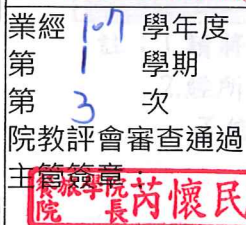 業經107學年度
第 1 學期
第 3 次
院教評會審查通過
主管簽章：
餐旅學院
院長芮懷民